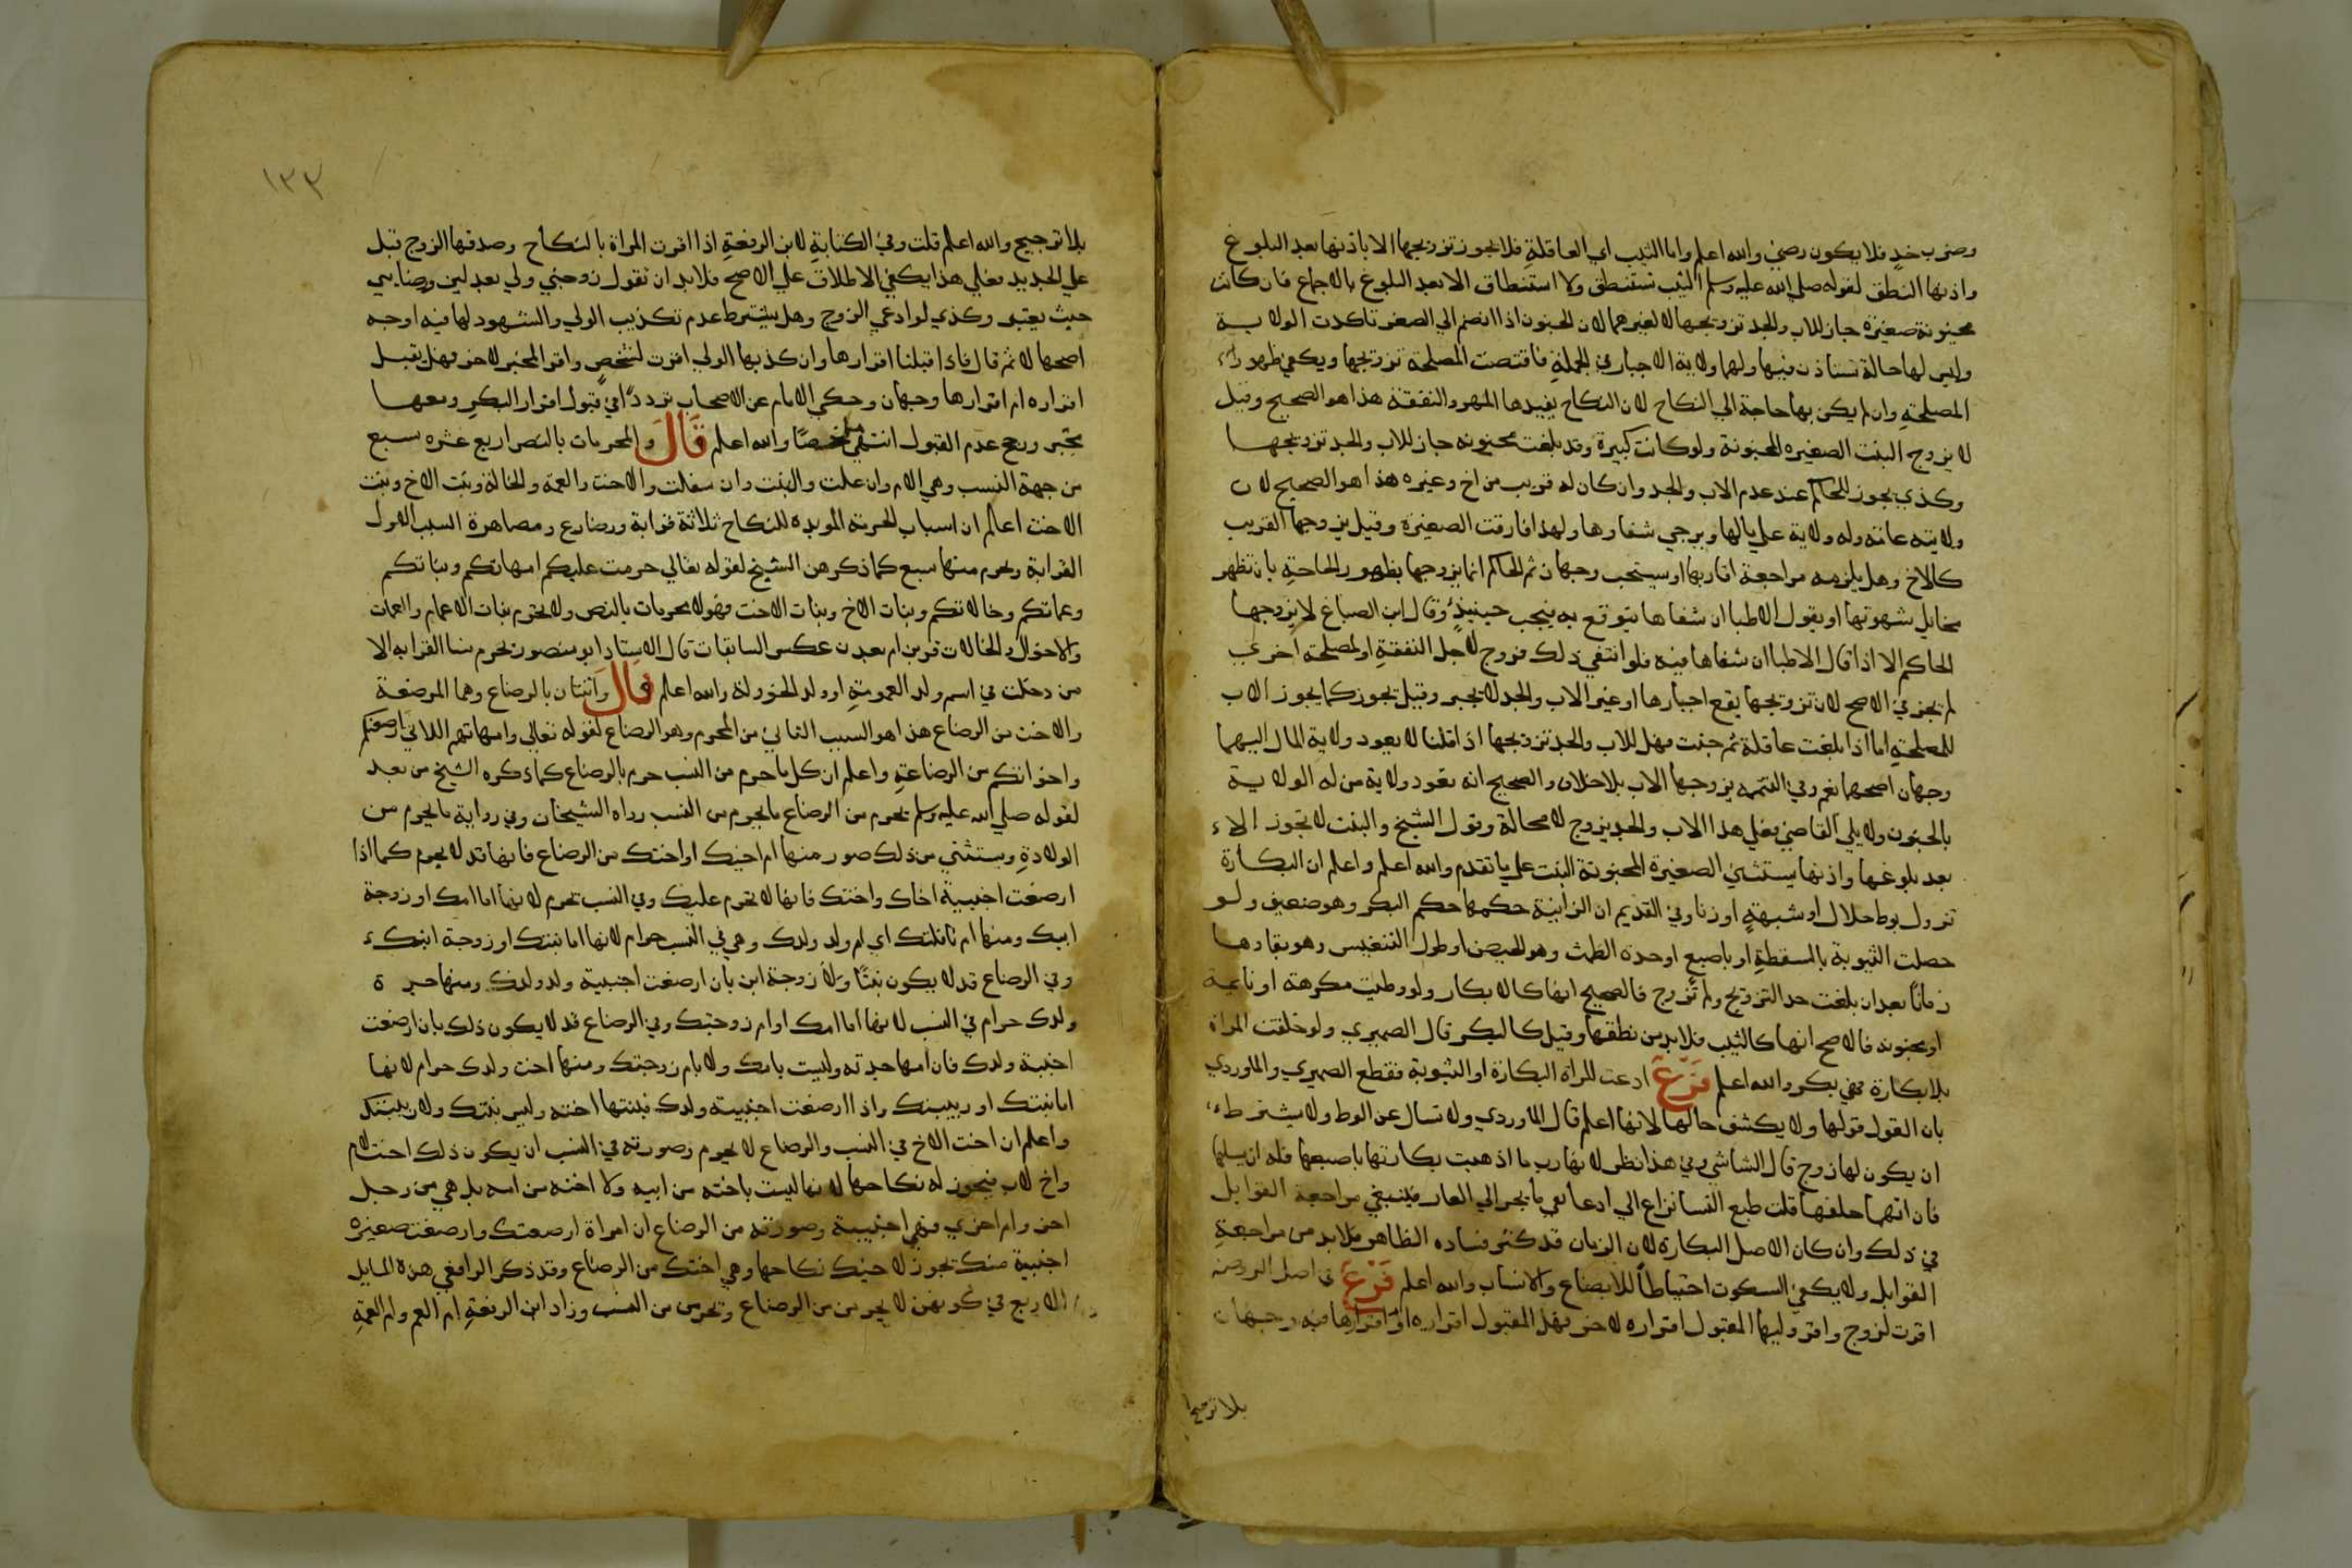 وضرب خد فلا يكون رضي والله اعلم واما الثيب اي العاقلة فلا يجوز تزويجها الا باذنها بعد البلوغ
واذنها النطق لقوله صلى الله عليه وسلم الثيب تستنطق ولا استنطاق الا بعد البلوغ بالاجماع فان كانت
مجنونة صغيرة جاز للاب والجد تزويجها لا لغيرهما لان الجنون اذا انضم الي الصغر تاكدت الولاية
وليس لها حالة تستاذن فيها ولهما ولاية الاجبار في الجملة فاقتضت المصلحة تزويجها ويكفي ظهور
المصلحة وان لم يكن بها حاجة الي النكاح لان النكاح يفيدها المهر والنفقة هذا هو الصحيح وقيل
لا يزوج البنت الصغيره المجنونة ولو كانت كبيرة وقد بلغت مجنونه جاز للاب والجد تزويجها
وكذي يجوز للحاكم عند عدم الاب والجد وان كان له قريب من اخ وغيره هذا هو الصحيح لان
ولايته عامة وله ولاية علي مالها ويرجي شفاوها ولهذا فارقت الصغيرة وقيل يزوجها القريب
كالاخ وهل يلزمه مراجعة اقاربها او يستحب وجهان ثم الحاكم انما يزوجها بظهور الحاجة بان تظهر
مخايل شهوتها او يقول الاطبا ان شفاها يتوقع به فيجب حينيذ وقال ابن الصباغ لا يزوجها
الحاكم الا اذا قال الاطبا ان شفاها فيه فلو انتفي ذلك فزوج لاجل النفقة او لمصلحة اخري
لم يجز في الاصح لان تزويجها يقع اجبارها وغير الاب والجد لا يجبر وقيل يجوز كما يجوز للاب
للمصلحة اما اذا بلغت عاقلة ثم جنت فهل للاب والجد تزويجها اذا قلنا لا يعود ولاية المال اليهما
وجهان اصحهما نعم وفي التتمه يزوجها الاب بلا خلاف والصحيح انه تعود ولاية من له الولاية
بالجنون ولا يلي القاضي فعلي هذا الاب والجد يزوج لا محالة وقول الشيخ والبنت لا تجوز الا
بعد بلوغها واذنها يستثني الصغيرة المجنونة البنت علي ما تقدم والله اعلم واعلم ان البكارة
تزول بوطء حلال او شبهة او زنا وفي القديم ان الزانية حكمها حكم البكر وهو ضعيف ولو
حصلت الثيوبة بالسقطة او باصبع او حدة الطمث وهو الحيض او طول التعنيس وهو بقاوها
زمانا بعد ان بلغت حد التزويج ولم تزوج فالصحيح انها كالابكار ولو وطيت مكرهة او نايمة
او مجنونه فالاصح انها كالثيب فلا بد من نطقها وقيل كالبكر قال الصيمري ولو خلقت المراة
بلا بكارة فهي بكر والله اعلم فرع ادعت المراة البكارة او الثيوبة فقطع الصيمري والماوردي
بان القول قولها ولا يكشف حالها لانها اعلم قال الماوردي ولا تسال عن الوطء ولا يشترط
ان يكون لها زوج قال الشاشي وفي هذا نظر لانها ربما اذهبت بكارتها باصبعها فله ان يسلها
فان اتهمها حلفها قلت طبع النسا نزاع الي ادعا نفي ما يجر الي العار فينبغي مراجعة القوابل
في ذلك وان كان الاصل البكارة لان الزمان قد كثر فساده الظاهر فلا بد من مراجعة
القوابل ولا يكفي السكوت احتياطا للابضاع والانساب والله اعلم فرع في اصل الروضة
اقرت لزوج واقر وليها المقبول اقراره لاخر فهل المقبول اقراره او اقرارها فيه وجهان
بلا ترجيح
١٣٣
بلا ترجيح والله اعلم قلت وفي الكفاية لابن الرفعة اذا اقرت المراة بالنكاح وصدقها الزوج قبل
علي الجديد فعلي هذا يكفي الاطلاق علي الاصح فلا بد ان تقول زوجني ولي بعدلين ورضايي
حيث يعتبر وكذي لو ادعي الزوج وهل يشترط عدم تكذيب الولي والشهود لها فيه اوجه
اصحها لا ثم قال فاذا قبلنا اقرارها وان كذبها الولي اقرت لشخص واقر المجبر لاخر فهل يقبل
اقراره ام اقرارها وجهان وحكي الامام عن الاصحاب ترددا في قبول اقرار البكر ومعها
مجبر ورجح عدم القبول انتهي ملخصا والله اعلم قال والمحرمات بالنص اربع عشره سبع
من جهة النسب وهي الام وان علت والبنت وان سفلت والاخت والعمة والخالة وبنت الاخ وبنت
الاخت اعلم ان اسباب الحرمة الموبدة للنكاح ثلاثة قرابة ورضاع ومصاهرة السبب الاول
القرابة ويحرم منها سبع كما ذكرهن الشيخ لقوله تعالي حرمت عليكم امهاتكم وبناتكم
وعماتكم وخالاتكم وبنات الاخ وبنات الاخت فهولا محرمات بالنص ولا يحرم بنات الاعمام والعمات
والاخوال والخالات قربن ام بعدن عكس السابقات قال الاستاد ابو منصور تحرم نسا القرابه الا
من دخلت في اسم ولد العمومة او ولد الخوولة والله اعلم قال واثنتان بالرضاع وهما المرضعة
والاخت من الرضاع هذا هو السبب الثاني من المحرم وهو الرضاع لقوله تعالي وامهاتكم اللاتي ارضعنكم
واخواتكم من الرضاعة واعلم ان كل ما حرم من النسب حرم بالرضاع كما ذكره الشيخ من بعد
لقوله صلى الله عليه وسلم يحرم من الرضاع ما يحرم من النسب رواه الشيخان وفي رواية ما يحرم من
الولادة ويستثني من ذلك صور منها ام اخيك او اختك من الرضاع فانها قد لا تحرم كما اذا
ارضعت اجنبية اخاك واختك فانها لا تحرم عليك وفي النسب تحرم لانها اما امك او زوجة
ابيك ومنها ام نافلتك اي ام ولد ولدك وهي في النسب حرام لانها اما بنتك او زوجة ابنك
وفي الرضاع قد لا يكون بنتا ولا زوجة ابن بان ارضعت اجنبية ولد ولدك ومنها جدة
ولدك حرام في النسب لانها اما امك او ام زوجتك وفي الرضاع قد لا يكون ذلك بان ارضعت
اجنبية ولدك فان امها جدته وليست بامك ولا بام زوجتك ومنها اخت ولدك حرام لانها
اما بنتك او ربيبتك واذا ارضعت اجنبية ولدك فبنتها اخته وليس بنتك ولا ربيبتك
واعلم ان اخت الاخ في النسب والرضاع لا يحرم وصورته في النسب ان يكون ذلك اخت لام
واخ لاب فيجوز له نكاحها لانها ليست باخته من ابيه ولا اخته من امه بل هي من رجل
اخر وام اخري فهي اجنبية وصورته من الرضاع ان امراة ارضعتك وارضعت صغيرة
اجنبية منك يجوز لاخيك نكاحها وهي اختك من الرضاع وقد ذكر الرافعي هذه المسايل
الاربع في كونهن لا يحرمن من الرضاع وتحرمن من النسب وزاد ابن الرفعة ام العم وام العمة